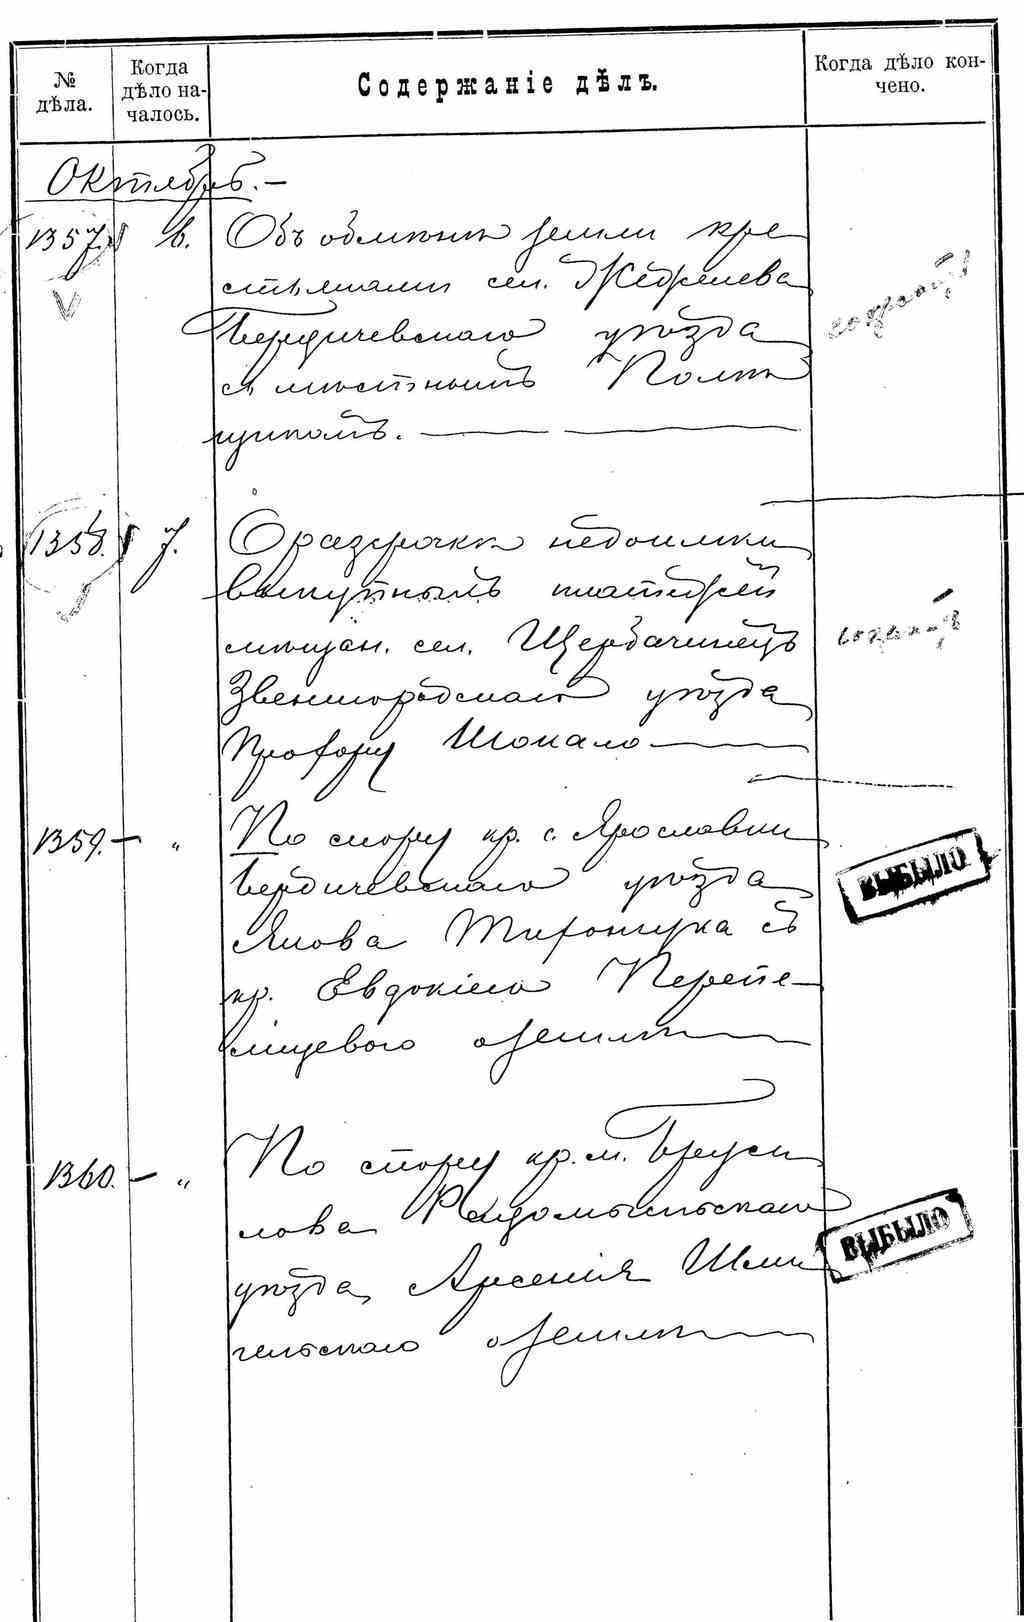 № дѣла.
Когда дѣло на-
чалось.
Содержаніе дѣлъ.
Когда дѣло кон-
чено.
Октябрь.—
1357. 6. Объ обмѣнѣ земли кре
стьянами сел. Жежелева
Бердичевскаго уѣзда
съ мѣстнымъ Помѣ
щикомъ.
1358. 7. О разсрочкѣ недоимки
выкупныхъ платежей
мѣщан. сел. Щербачинецъ
Звенигородскаго уѣзда
Прохору Шокало
1359.— " По спору кр. с. Ярославки
Бердичевскаго уѣзда
Якова Тихончука съ
кр. Евдокіею Перепе-
лицевого о землѣ
ВЫБЫЛО
1360.— " По спору кр. м. Бруси
лова Радомысльскаго
уѣзда Арсенія Шми
гельскаго о землѣ
ВЫБЫЛО